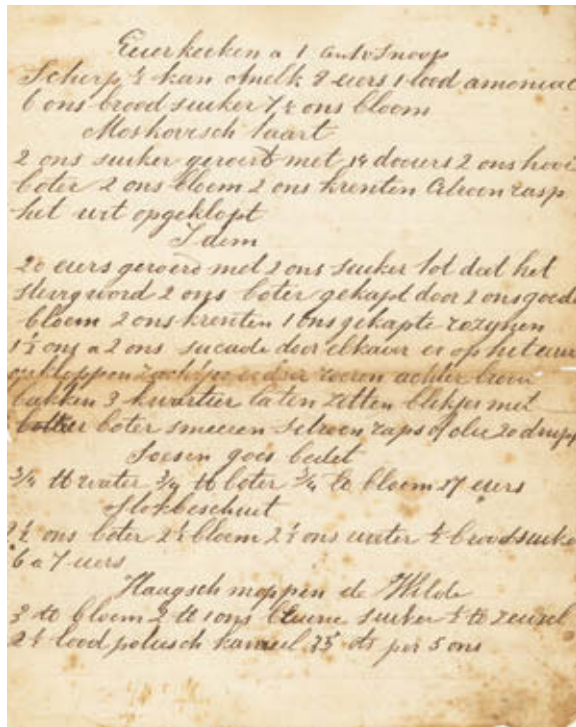 Eierkoeken a 1 Snoop
Scherp ½ kan Melk 8 eiers 1 lood amoniac
6 ons brood suiker 7½ ons bloem
Moskovisch taart
2 ons suiker geroert met 14 dooiers 2 ons hooi
boter 2 ons bloem 2 ons krenten Citroen rasp
het wit opgeklopt
Idem
20 eiers geroerd met 2 ons suiker tot dat het
word 2 ons boter gekapt door 2 ons goede
bloem 2 ons krenten 1 ons gekapte rozynen
1½ ons a 2 ons sucade door elkaar en op het
roeren achter
bakken 3 kwartier laten zitten blikjes met
boter smeeren Sitroen raps of olie 20 drupp
Soesen goes
¾ tt water ¾ tt boter ¾ tt bloem 17 eiers
Stokbeschuit
2½ ons boter 2½ bloem 2½ ons water ½ broodsuike
6 a 7 eiers
Haagsch moppen de Wilde
3 tt bloem 2 tt 1 ons bruine suiker ½ tt reusel
2½ lood kaneel 35 ds per 5 ons